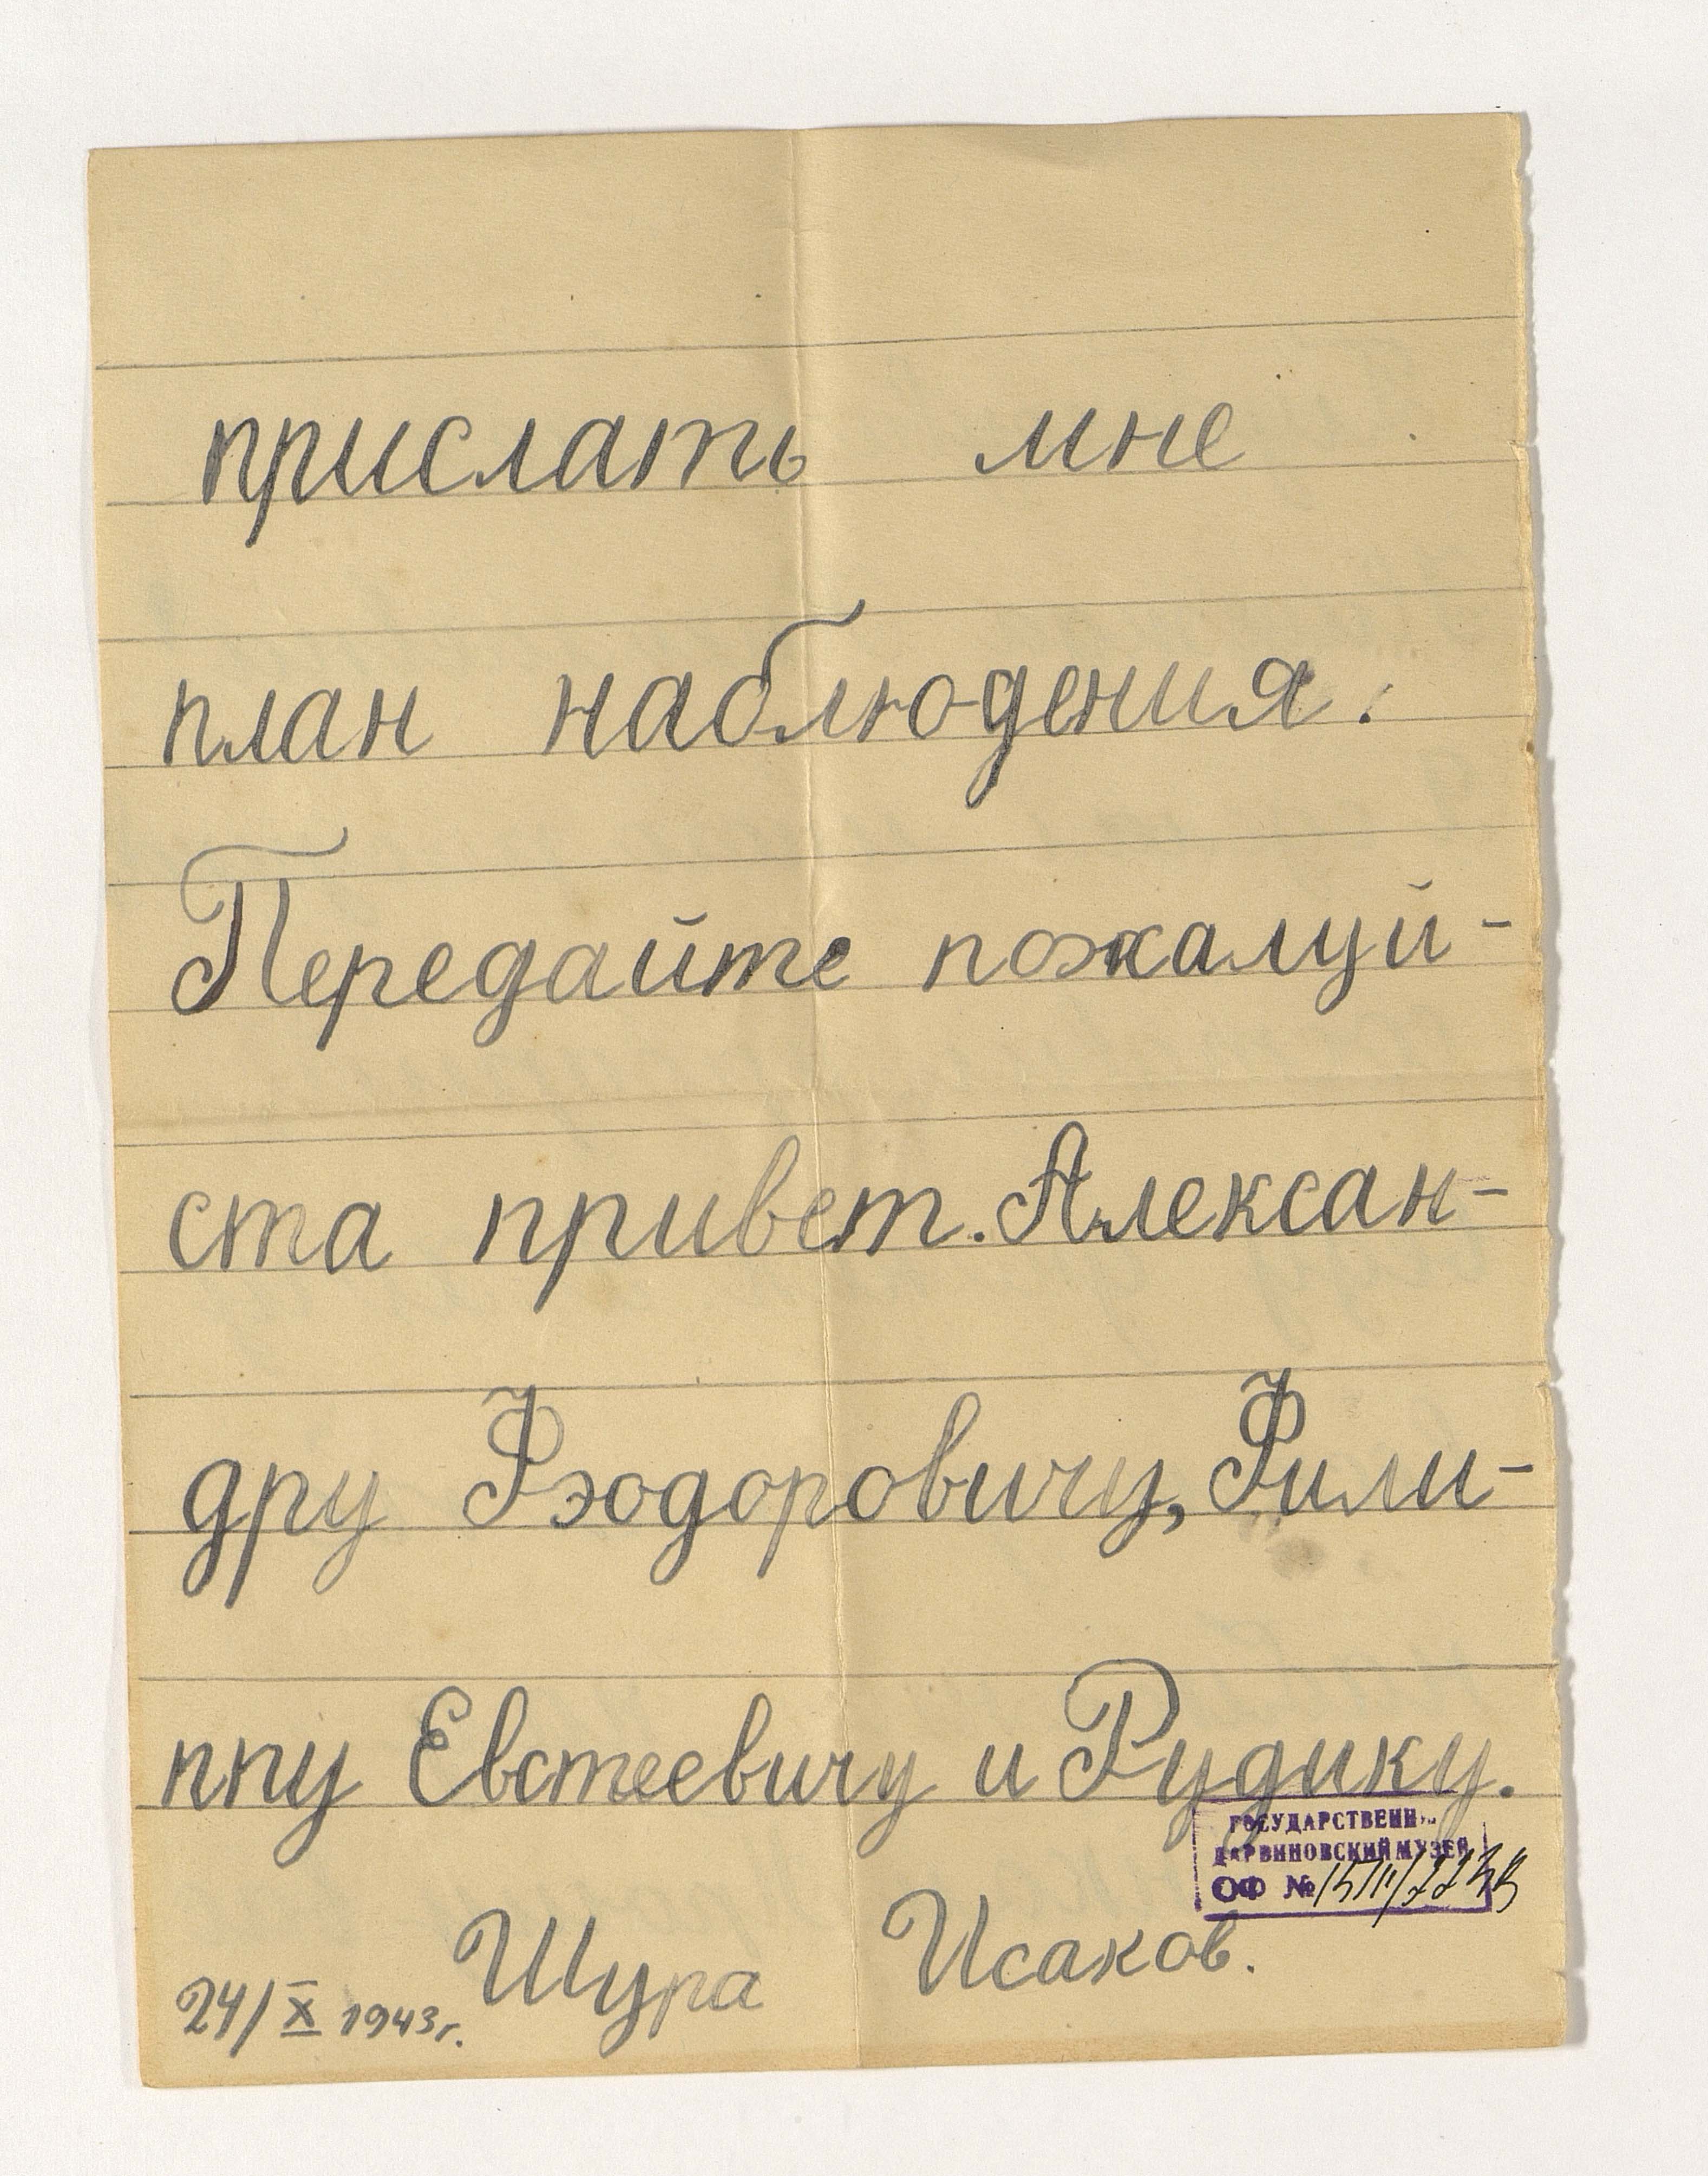 прислать мне
план наблюдения.
Передайте пожалуй-
ста привет. Алексан-
дру Фэодоровичу, Фили-
ппу Евстеевичу и Рудику.
ГОСУДАРСТВЕНН
ДАРВИНОВСКИЙ МУЗЕЙ
ОФ №
Шура Исаков.
24/X 1943г.